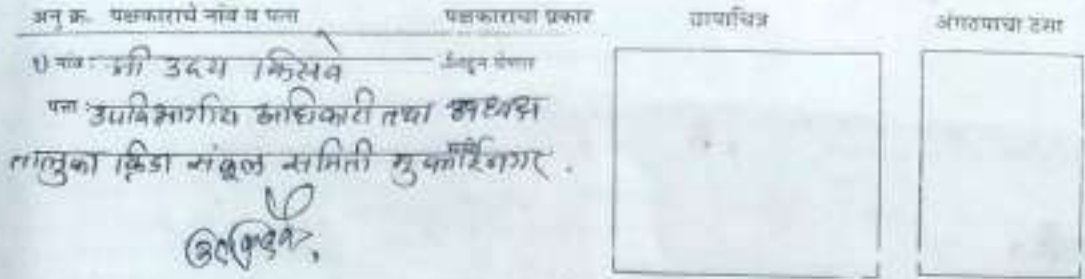 अनु क्र. पक्षकाराचे नांव व पत्ता पक्षकाराचा प्रकार छायाचित्र अंगठ्याचा ठसा
१) नांव: श्री उदय किसवे लिहून घेणार
पत्ता: उपविभागीय अधिकारी तथा अध्यक्ष
तालुका क्रिडा संकुल समिती मुक्ताईनगर.